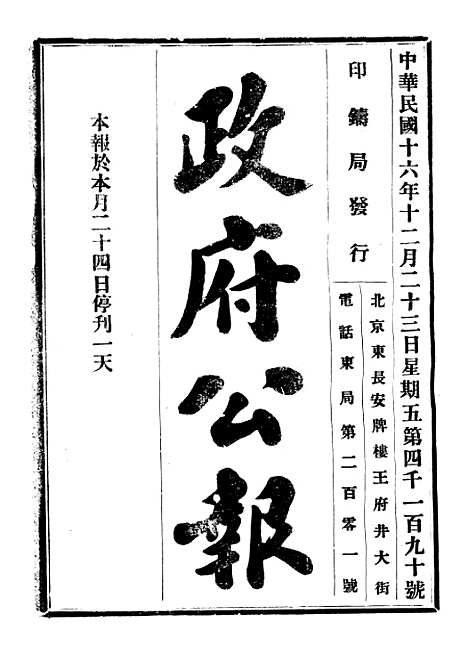 中華民國十六年十二月二十三日星期五第四千一百九十號
印鑄局發行
北京東長安牌樓王府井大街
電話東局第二百零一號
政府公報
本報於本月二十四日停刊一天